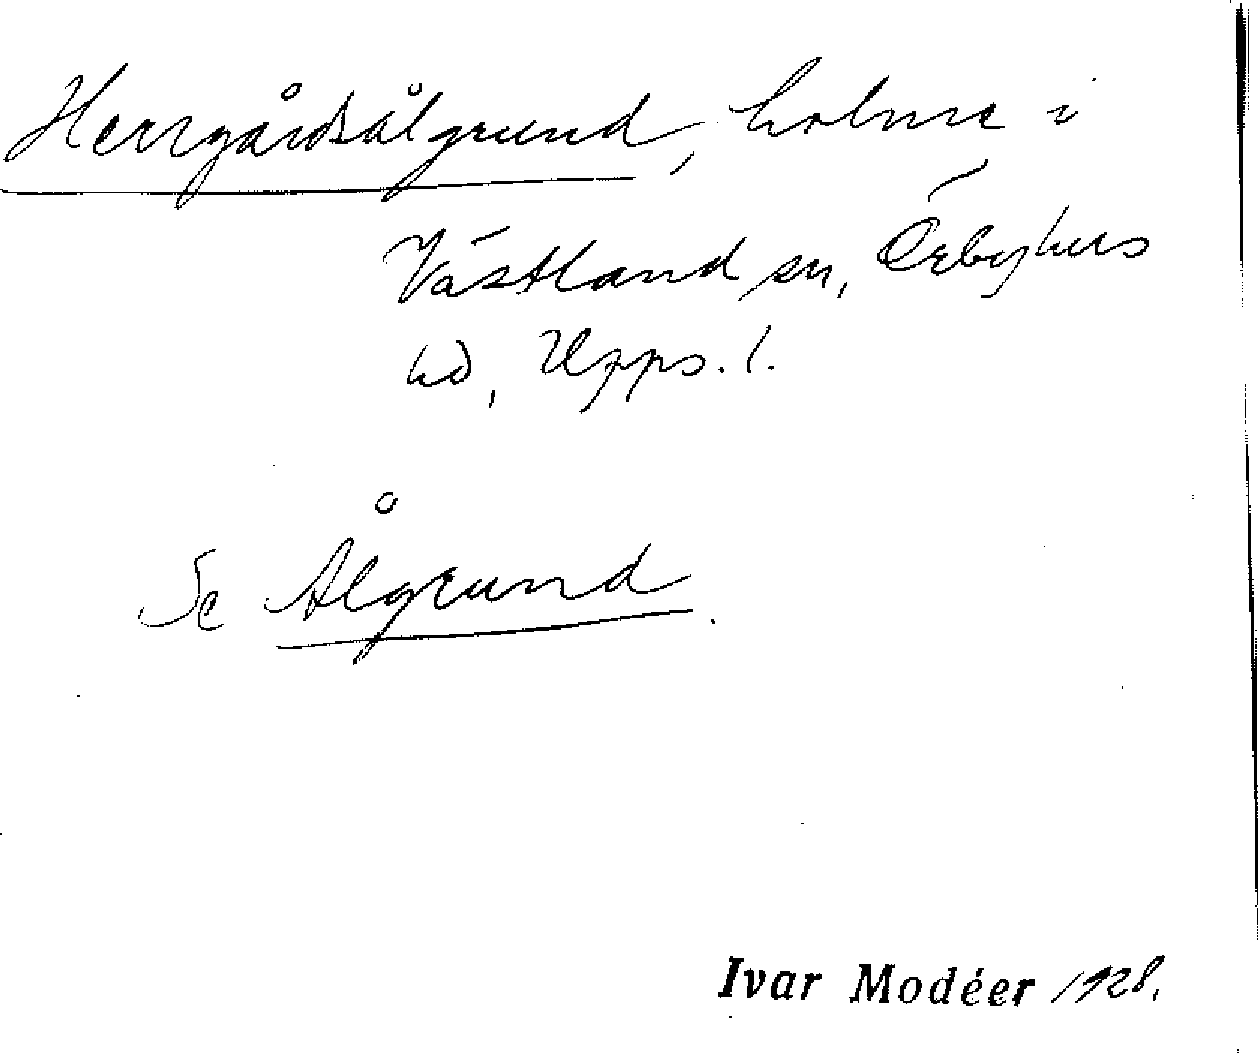 Herrgårdsålgrund, holme i
Västland sn, Örbyhus
hd, Upps. l.
Se Ålgrund.
Ivar Modéer 1928.